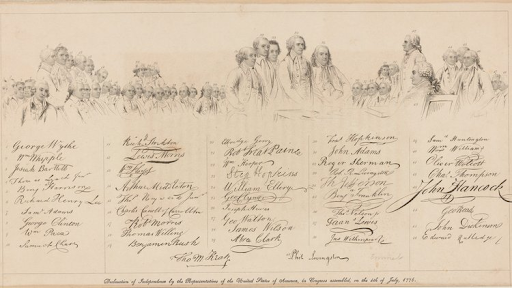 George Wythe
Wm Whipple
Josiah Bartlett
Benj Harrison
Richard Henry Lee
Saml Adams
George Clinton
Wm Paca
Samuel Chase
Richd Stockton
Lewis Morris
Wm Floyd
Arthur Middleton
Thos Heyward Junr
Charles Carroll of Carrollton
Robt Morris
Thomas Willing
Benjamin Rush
Elbridge Gerry
Robt Treat Paine
Wm Hooper
Step Hopkins
William Ellery
Geo Clymer
Joseph Hewes
Geo Walton
James Wilson
Abra Clark
Fras Hopkinson
John Adams
Roger Sherman
Th Jefferson
Benj Franklin
Thos Nelson jr
Frans Lewis
Jno Witherspoon
Saml Huntington
Wm Williams
Oliver Wolcott
Chas Thompson
John Hancock
Geo Read
John Dickinson
Edward Rutledge
Tho M. Kean
Phil Livingston
Declaration of Independence by the Representatives of the United States of America, in Congress assembled on the 4th of July, 1776.